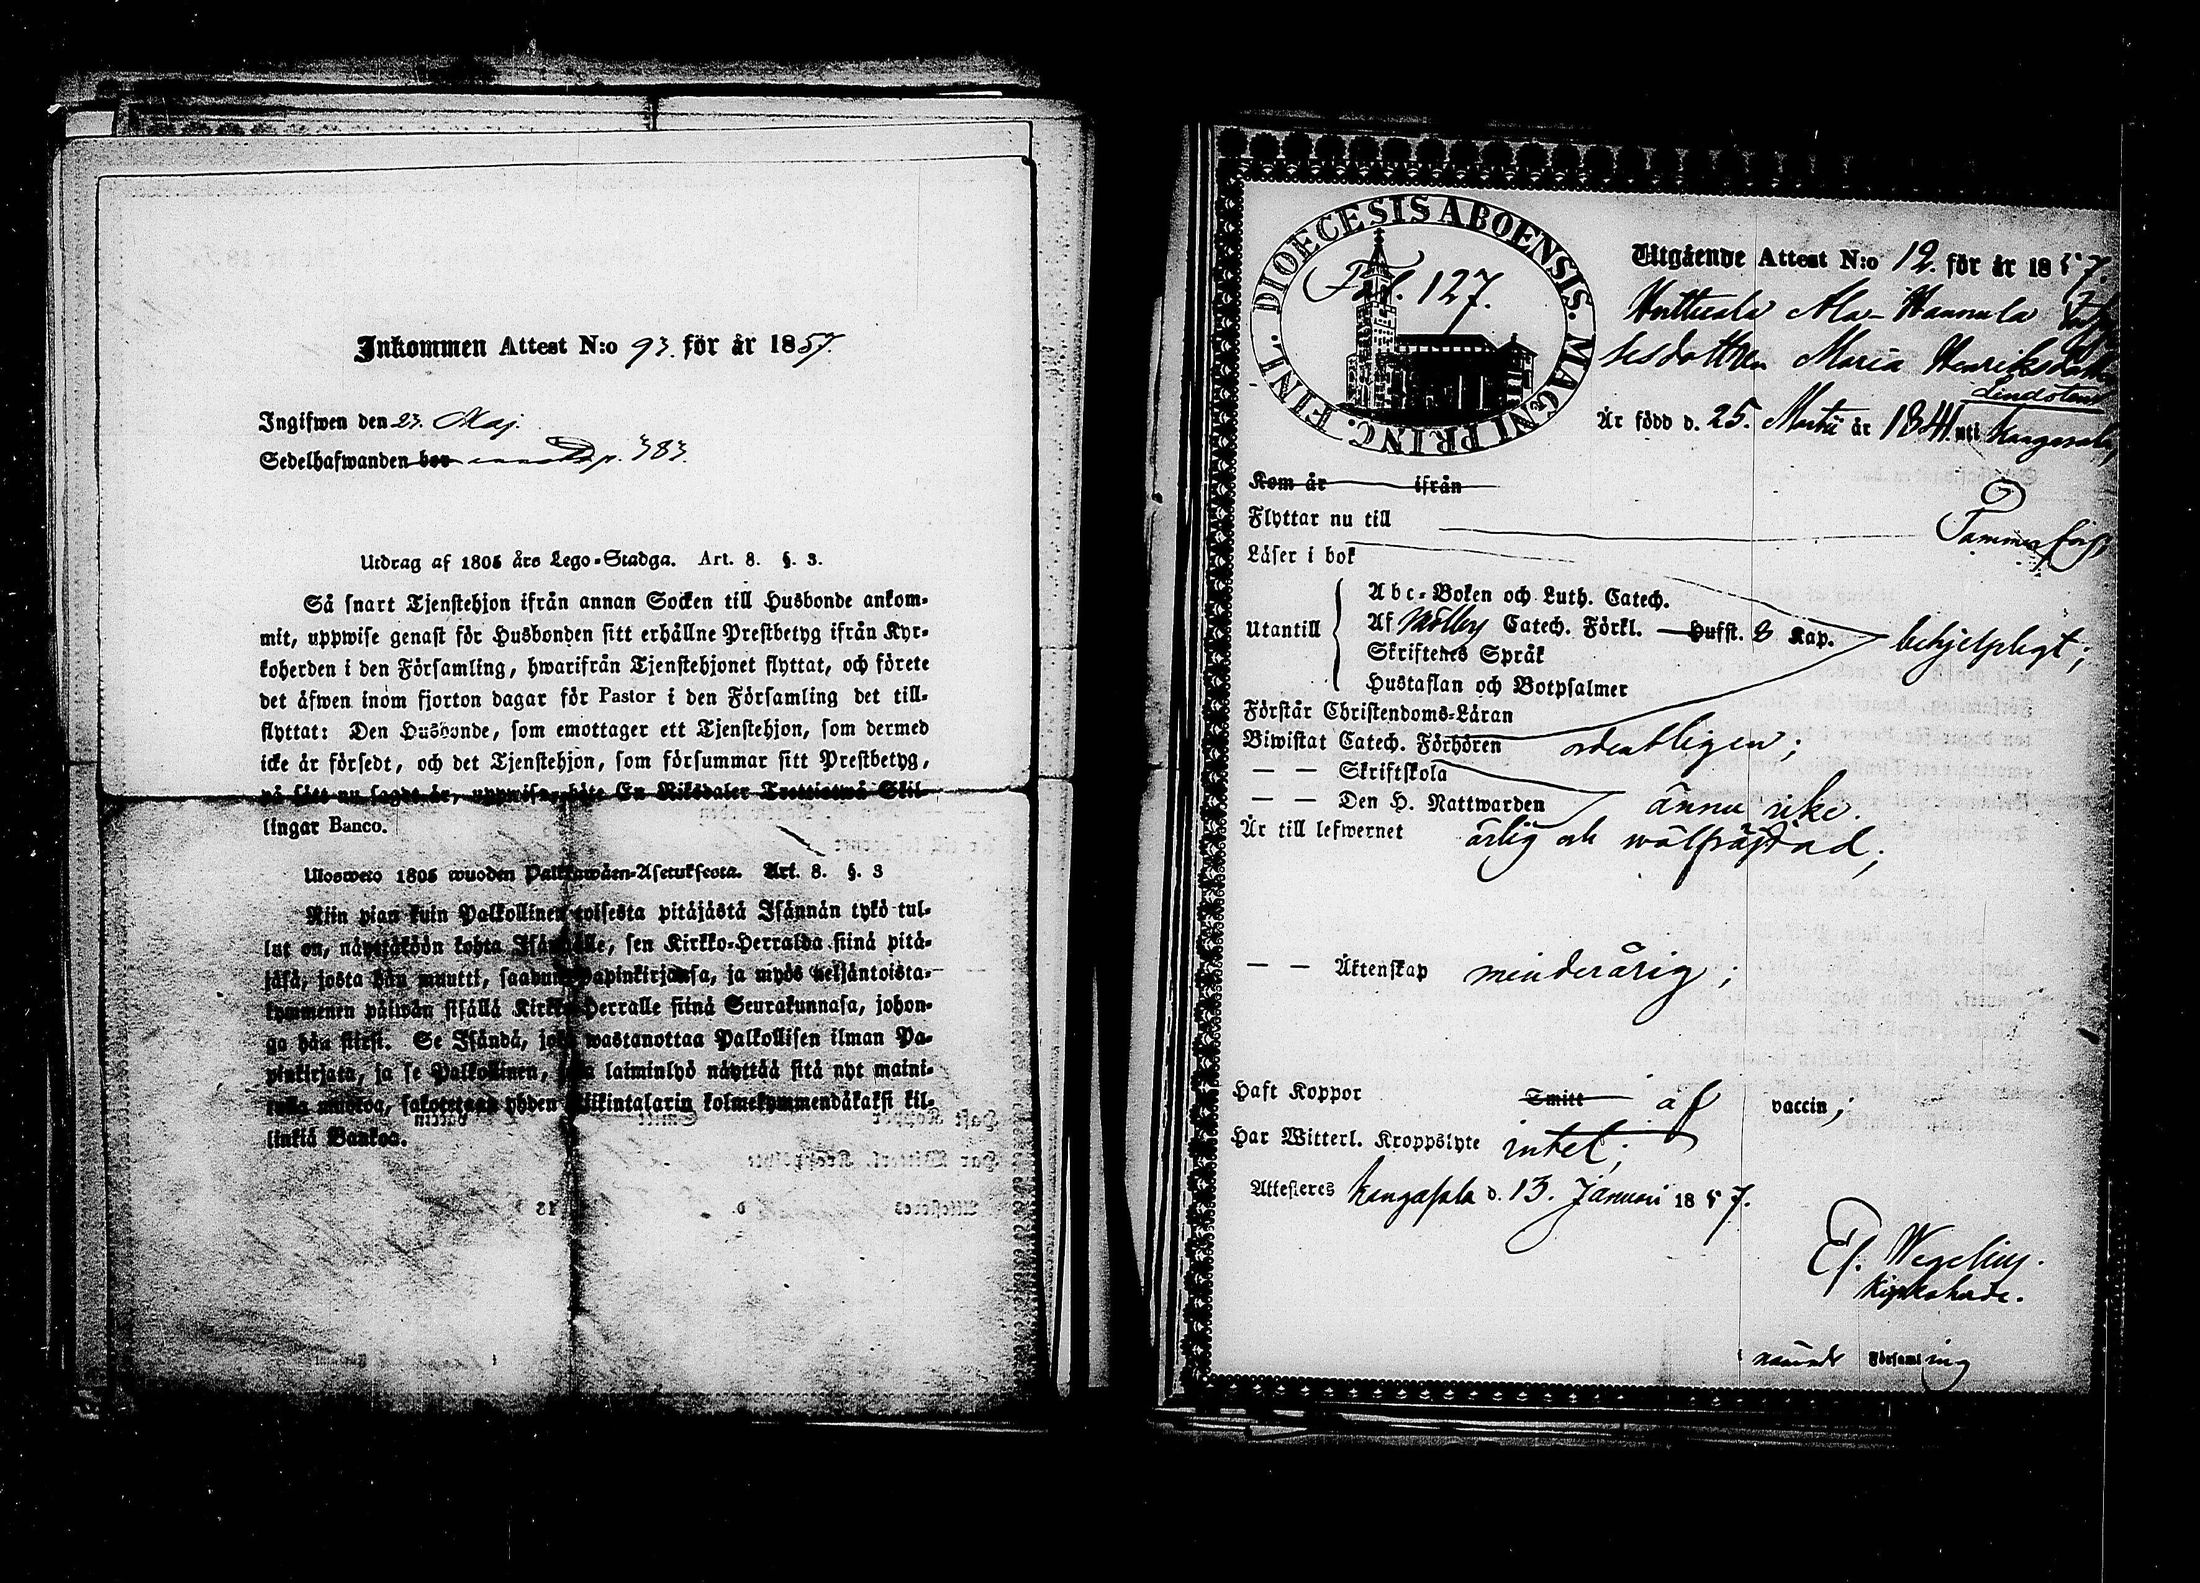 Inkommen Attest N:o 93. för år 1857.
Ingifwen den 23. Maj.
Sedelhafwanden bor p. 383.
Utdrag af 1805 års Lego-Stadga. Art. 8. §. 3.
Så snart Tjenstehjon ifrån annan Socken till Husbonde ankom-
mit, uppwise genast för Husbonden sitt erhållne Prestbetyg ifrån Kyr-
koherden i den Församling, hwarifrån Tjenstehjonet flyttat, och förete
det äfwen inom fjorton dagar för Pastor i den Församling det till-
flyttat: Den Husbonde, som emottager ett Tjenstehjon, som dermed
icke är försedt, och det Tjenstehjon, som försummar sitt Prestbetyg,
på sätt nu sagdt är, uppwisa, böte En Riksdaler Trettiotwå Skil-
lingar Banco.
Ulosweto 1805 wuoden Palkkawäen-Asetuksesta. Art. 8. §. 3
Niin pian kuin Palkollinen toisesta pitäjästä Isännän tykö tul-
lut on, näyttäköön kohta Isännälle, sen Kirkko-Herralda siinä pitä-
jäsä, josta hän muutti, saadun papinkirjansa, ja myös neljäntoista-
kymmenen päiwän sisällä Kirkko-Herralle siinä Seurakunnasa, johon-
ga hän siirsi. Se Isändä, joka wastanottaa Palkollisen ilman Pa-
pinkirjata, ja se Palkollinen, joka laiminlyö näyttää sitä nyt maini-
tulla muotoa, sakotetaan yhden Riikintalarin kolmekymmendäkaksi kil-
linkiä Bankoa.
DIOECESIS ABOENSIS. MAGNI PRINC. FINL.
Fol. 127.
Utgående Attest N:o 12. för år 1857.
Huttiala Ala-Hannula
Maria Henriksdotter
Lindsten
Är född d. 25. Martii år 1841. uti Kangasala,
Kom år ifrån
Flyttar nu till Tammerfors,
Läser i bok
Utantill Abc-Boken och Luth. Catech.
Af Möllers Catech. Förkl. Hufst. 8 Kap. behjelpligt;
Skriftenes Språk
Hustaflan och Botpsalmer
Förstår Christendoms-Läran
Biwistat Catech. Förhören ordentligen;
— — Skriftskola
— — Den H. Nattwarden ännu icke.
Är till lefwernet ärlig och wälfräjdad;
— — Äktenskap minderårig;
Haft Koppor Smitt af vaccin;
Har Witterl. Kroppslyte intet;
Attesteres Kangasala d. 13. Januari 1857.
Ef. Wegelius.
Kyrkoherde.
nämnde Församling